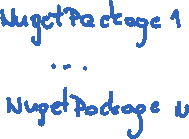 NugetPackage 1
...
NugetPackage N